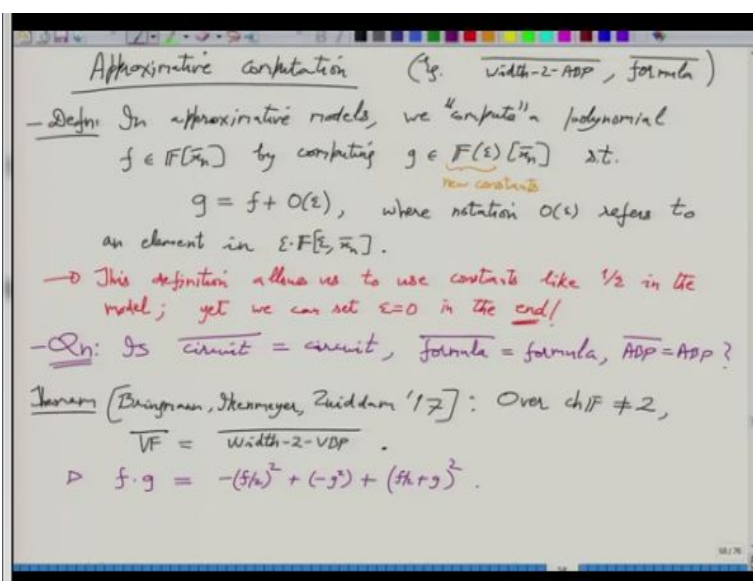 Approximative computation (Eg. \overline{width-2-ABP}, \overline{formula})
- Defn: In approximative models, we "compute" a polynomial
f ∈ 𝔽[x̄ₙ] by computing g ∈ 𝔽(ε)[x̄ₙ] s.t.
new constants
g = f + O(ε), where notation O(ε) refers to
an element in ε·𝔽[ε, x̄ₙ].
→ This definition allows us to use constants like 1/2 in the
model; yet we can set ε=0 in the end!
- Qn: Is \overline{circuit} = circuit, \overline{formula} = formula, \overline{ABP} = ABP ?
Theorem [Bringmann, Ikenmeyer, Zuiddam '17]: Over ch𝔽 ≠ 2,
\overline{VF} = \overline{Width-2-VBP}.
▷ f·g = -(f/2)² + (-g²) + (f/2+g)².
58/76